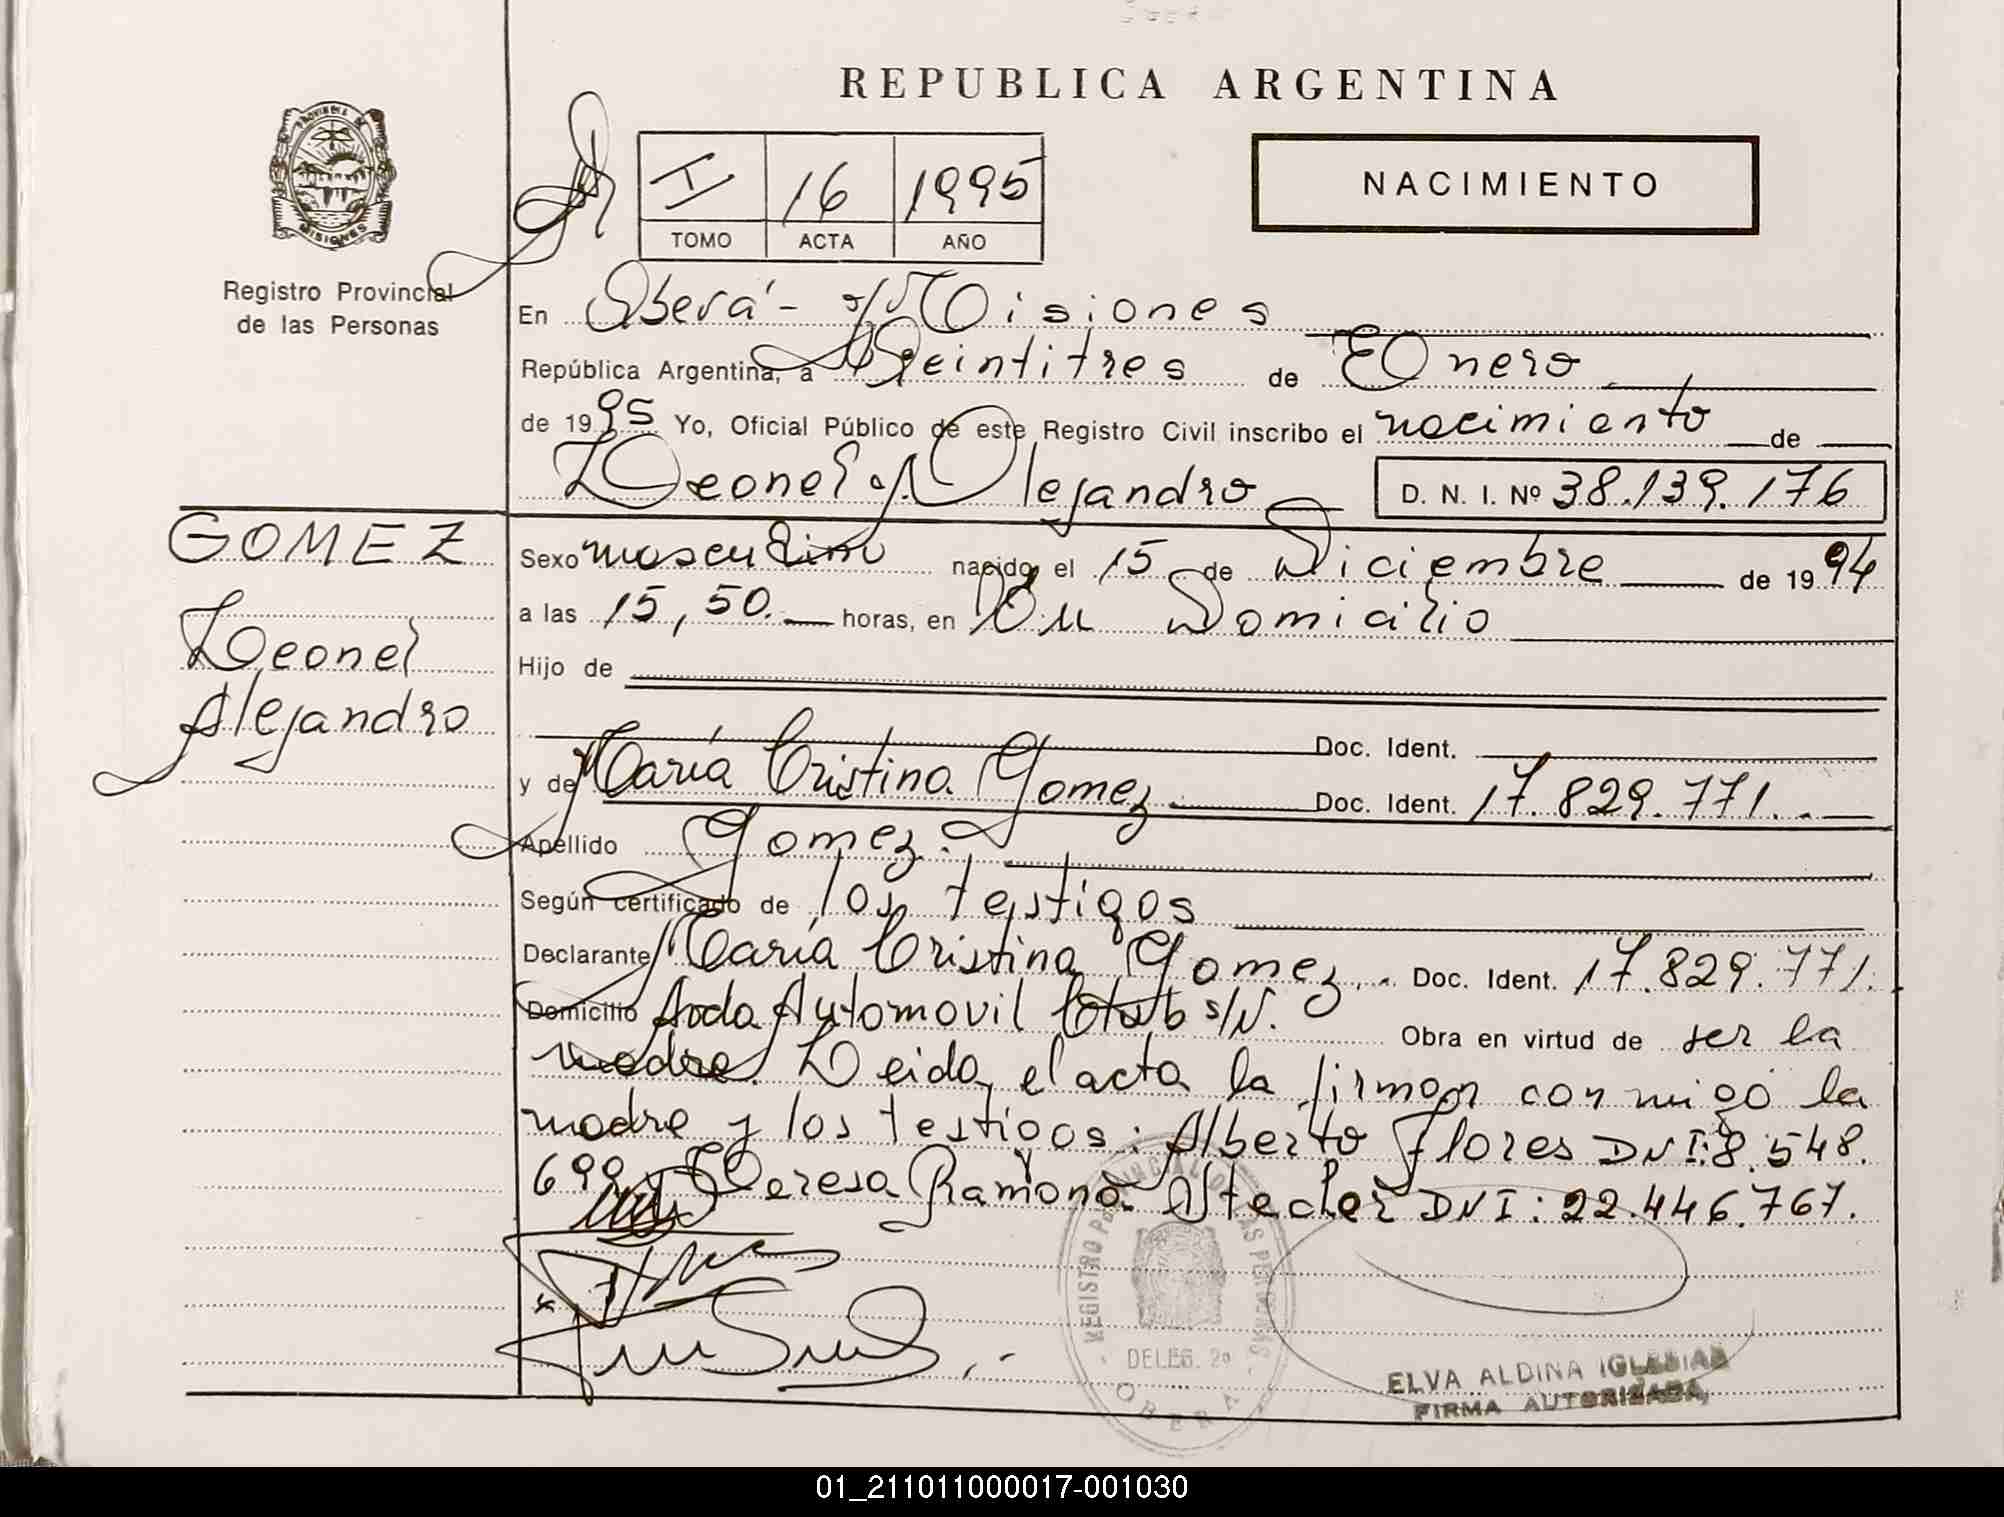 REPUBLICA ARGENTINA
I 16 1995
TOMO ACTA AÑO
NACIMIENTO
PROVINCIA DE
MISIONES
Registro Provincial
de las Personas
En Oberá - Misiones
República Argentina, a Veintitres de Enero
de 1995 Yo, Oficial Público de este Registro Civil inscribo el nacimiento de
Leonel Alejandro D. N. I. Nº 38.139.176
GOMEZ
Leonel
Alejandro
Sexo masculino nacido el 15 de Diciembre de 1994
a las 15,50. horas, en Su Domicilio
Hijo de
Doc. Ident.
y de María Cristina Gomez Doc. Ident. 17.829.771.
Apellido Gomez.
Según certificado de los testigos
Declarante María Cristina Gomez. Doc. Ident. 17.829.771.
Domicilio Avda Automovil Club s/N. Obra en virtud de ser la
madre. Leida el acta la firman conmigo la
madre y los testigos: Alberto Flores DNI:8.548.
699 y Teresa Ramona DNI: 22.446.767.
REGISTRO PROVINCIAL DE LAS PERSONAS
DELEG. 2a
OBERA
ELVA ALDINA IGLESIAS
FIRMA AUTORIZADA
01_211011000017-001030